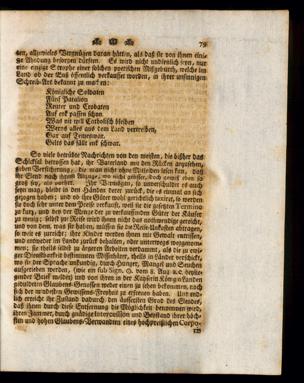 79
sen, allzuvieles Vergnügen daran hätten, als daß sie von ihnen einige
Ahndung besorgen dürften. Es wird nicht undienlich seyn, nur
eine einzige Strophe einer solchen poetischen Mißgeburth, welche im
Land ob der Enß öffentlich verkauffet worden, in ihrer unsinnigen
Schreib-Art bekannt zu machen:
Königliche Soldaten
Fünf
Reuter und Crobaten
Auf enk passen schon.
Was nit will Catholisch bleiben
alles aus dem Land vertreiben,
Gar auf
Gelts das fällt enk schwar.
So viele betrübte Nachrichten von den meisten, die bißher das
Schicksal betroffen hat, ihr Vaterland mit dem Rücken anzusehen,
geben Versicherung, die man nicht ohne Mitleiden lesen kan, daß
die Noth nach ihrem Abzuge, wo nicht grösser, doch eben so
groß sey, als vorher. Ihr Vermögen, so unverschuldet es auch
seyn mag, bleibt in den Händen derer zurück, die es einmal an sich
gezogen haben; und ob ihre Güter wohl gerichtlich taxirt, so werden
sie doch sehr unter dem Preise verkauft, weil sie die gesetzten Termine
zu kurz, und den der Menge der zu verkauffenden Güter der Käufer
zu wenig; selbst zur Reise wird ihnen nicht das nothwendige gereicht,
und von dem, was sie haben, müssen sie die Reise-Unkosten abtragen,
so weit es zureicht; ihre Kinder werden ihnen mit Gewalt entrissen,
und entweder im Lande zurück behalten, oder unterwegs weggenommen;
sie theils selbst zu
theils in Länder verschickt,
wo sie der Sprache unkundig, durch Hunger, Mangel und Seuchen
aufgerieben werden, (wie ein sub Sign. O. vom 8. Aug. a. c.
Brief meldet) und von ihren in der Käyserin Königin Landen
geduldeten Glaubens-Genossen weder einen zu sehen bekommen, noch
sich der mindesten Gewissens-Freyheit zu erfreuen haben. Und endlich
erreicht ihr Zustand dadurch den äussersten Grad des Elendes,
daß ihnen durch diese Entfernung die Möglichkeit benommen wird,
ihren Jammer, durch gnädige Intercession und Beystand ihrer höchsten
und hohen Glaubens-Verwandten eines hochpreißlichen Corpo-